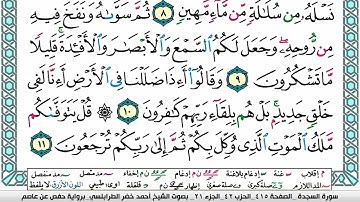 نَسۡلَهُۥ مِن سُلَٰلَةٖ مِّن مَّآءٖ مَّهِينٖ ٨ ثُمَّ سَوَّىٰهُ وَنَفَخَ فِيهِ
مِن رُّوحِهِۦۖ وَجَعَلَ لَكُمُ ٱلسَّمۡعَ وَٱلۡأَبۡصَٰرَ وَٱلۡأَفۡـِٔدَةَۚ قَلِيلٗا
مَّا تَشۡكُرُونَ ٩ وَقَالُوٓاْ أَءِذَا ضَلَلۡنَا فِي ٱلۡأَرۡضِ أَءِنَّا لَفِي
خَلۡقٖ جَدِيدِۭۚ بَلۡ هُم بِلِقَآءِ رَبِّهِمۡ كَٰفِرُونَ ١٠ ۞ قُلۡ يَتَوَفَّىٰكُم
مَّلَكُ ٱلۡمَوۡتِ ٱلَّذِي وُكِّلَ بِكُمۡ ثُمَّ إِلَىٰ رَبِّكُمۡ تُرۡجَعُونَ ١١
سورة السجدة _ الصفحة ٤١٥ _ الحزب ٤٢ _ الجزء ٢١ _ بصوت الشيخ أحمد خضر الطرابلسي _ برواية حفص عن عاصم